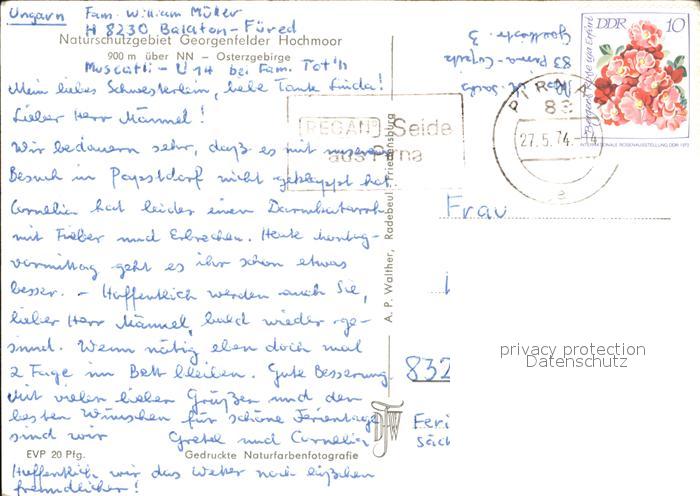 Ungarn Fam. William Müller
H 8230 Balaton-Füred
Naturschutzgebiet Georgenfelder Hochmoor
900 m über NN - Osterzgebirge
Muscatli-U 14 bei Fam. Tot'h
Mein liebes Schwesterlein, liebe Tante Linda!
Lieber Herr Männel!
Wir bedauern sehr, daß es mit unserem
Besuch in Papstdorf nicht geklappt hat.
Cornelia hat leider einen Darmkatarrh
mit Fieber und Erbrechen. Heute montag-
vormittag geht es ihr schon etwas
besser. - Hoffentlich werden auch Sie,
lieber Herr Männel, bald wieder ge-
sund. Wenn nötig eben doch mal
2 Tage im Bett bleiben. Gute Besserung.
Mit vielen lieben Grüßen und den
besten Wünschen für schöne Ferientage
sind wir Gretel und Cornelia
EVP 20 Pfg. Gedruckte Naturfarbenfotografie
Hoffentlich wir das Wetter noch bißchen
freundlicher!
REGAN Seide
aus Pirna
A. P. Walther, Radebeul - Friedensburg
83 Pirna-
PIRNA
83
27.5.74.-14
e
DDR 10
INTERNATIONALE ROSENAUSSTELLUNG DDR 1972
Frau
832
Feri
säch
privacy protection
Datenschutz